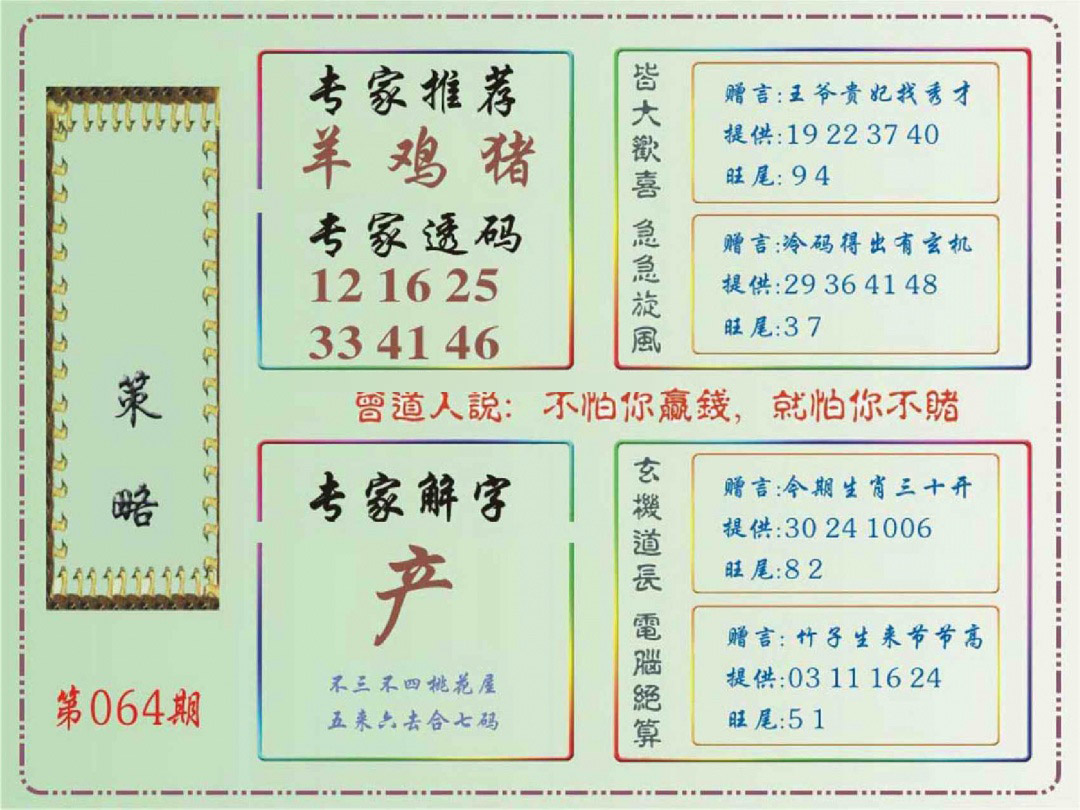 策略
第064期
专家推荐
羊鸡猪
专家透码
12 16 25
33 41 46
皆大歡喜
赠言:王爷貴妃找秀才
提供:19 22 37 40
旺尾:9 4
急急旋風
赠言:冷码得出有玄机
提供:29 36 41 48
旺尾:3 7
曾道人説：不怕你赢錢，就怕你不賭
专家解字
产
不三不四桃花屋
五来六去合七码
玄機道長
赠言:今期生肖三十开
提供:30 24 1006
旺尾:8 2
電腦絕算
赠言:竹子生来节节高
提供:03 11 16 24
旺尾:5 1